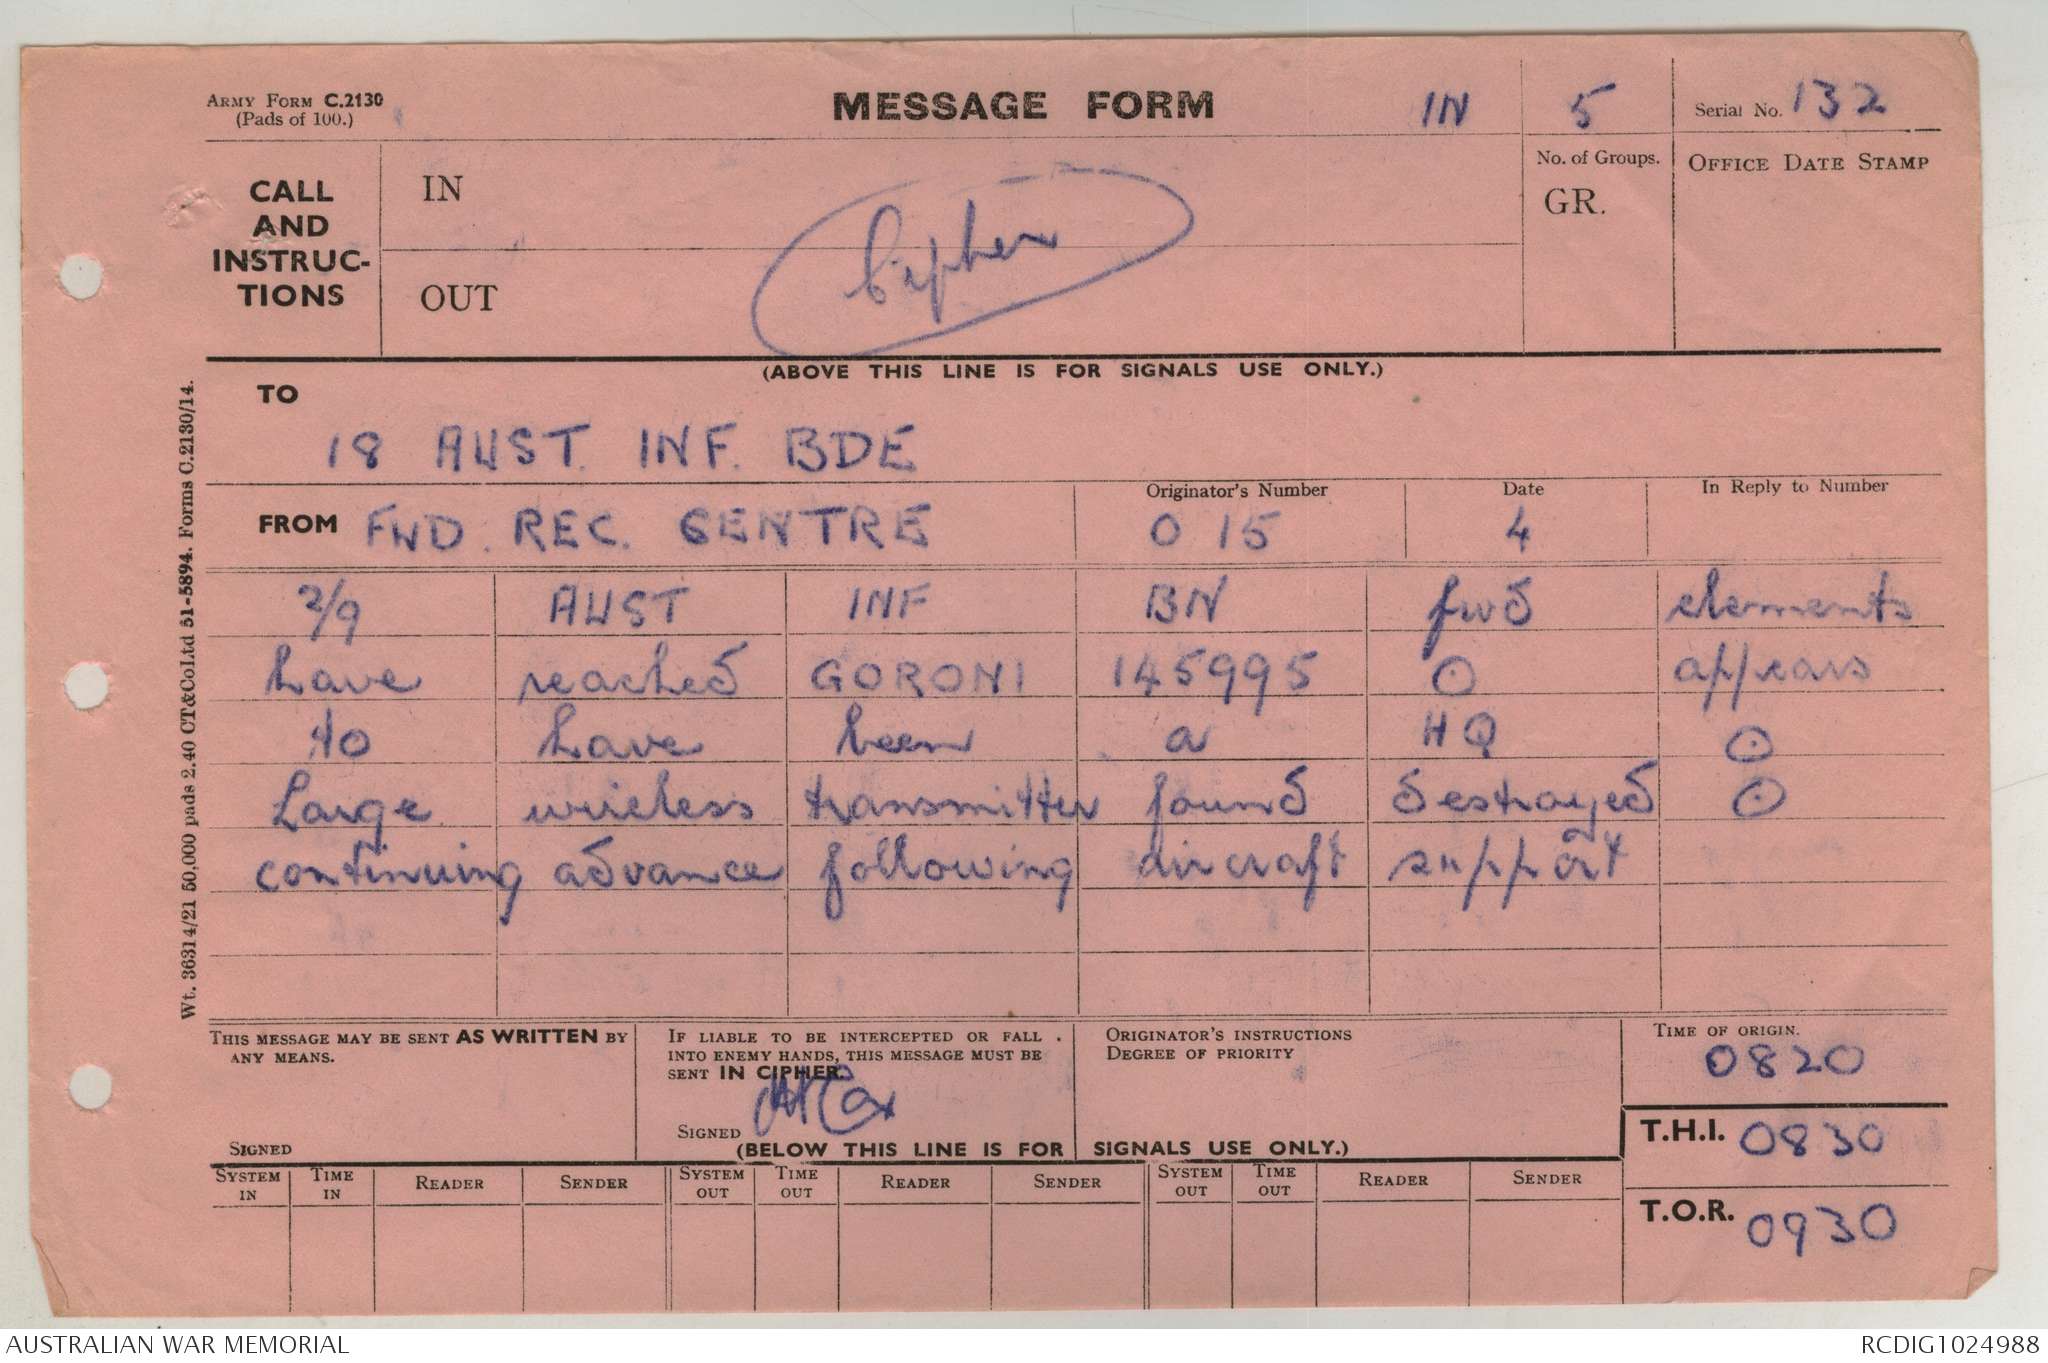 ARMY FORM C.2130
(Pads of 100.)
MESSAGE FORM
IN 5
Serial No. 132
No. of Groups.
GR.
OFFICE DATE STAMP
CALL
AND
INSTRUC-
TIONS
IN
OUT
Cipher
(ABOVE THIS LINE IS FOR SIGNALS USE ONLY.)
TO
18 AUST. INF. BDE
FROM FWD. REC. CENTRE
Originator's Number
O 15
Date
4
In Reply to Number
2/9 AUST INF BN fwd elements
have reached GORONI 145995 ⊙ appears
to have been a HQ ⊙
Large wireless transmitter found destroyed ⊙
continuing advance following aircraft support
THIS MESSAGE MAY BE SENT AS WRITTEN BY
ANY MEANS.
SIGNED
IF LIABLE TO BE INTERCEPTED OR FALL
INTO ENEMY HANDS, THIS MESSAGE MUST BE
SENT IN CIPHER.
SIGNED
ORIGINATOR'S INSTRUCTIONS
DEGREE OF PRIORITY
TIME OF ORIGIN.
0820
T.H.I. 0830
T.O.R. 0930
(BELOW THIS LINE IS FOR SIGNALS USE ONLY.)
SYSTEM IN TIME IN READER SENDER SYSTEM OUT TIME OUT READER SENDER SYSTEM OUT TIME OUT READER SENDER
Wt. 36314/21 50,000 pads 2.40 CT&CoLtd 51-5894. Forms C.2130/14.
AUSTRALIAN WAR MEMORIAL
RCDIG1024988